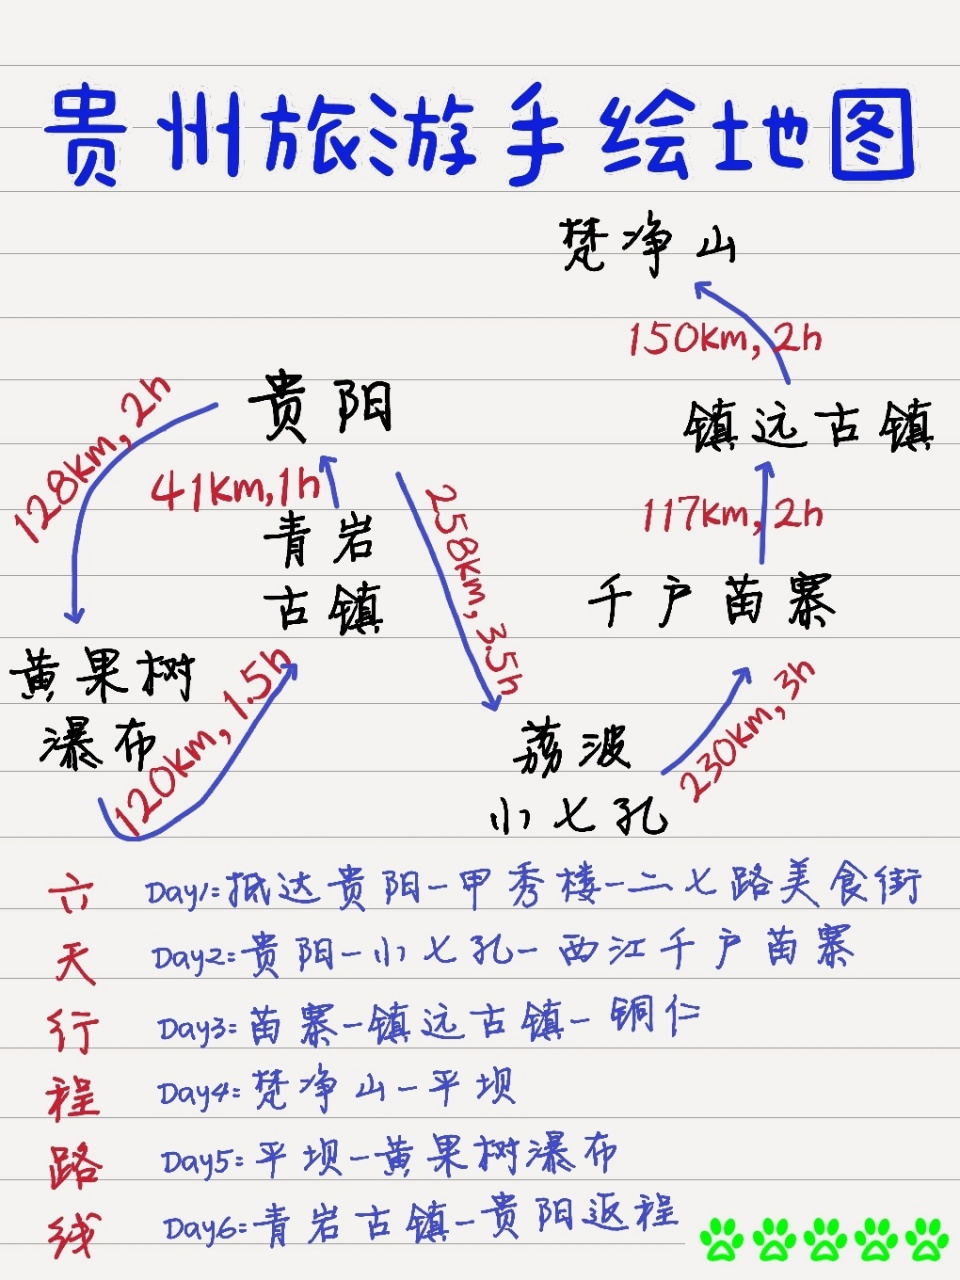 贵州旅游手绘地图
梵净山
150km, 2h
贵阳
128km, 2h
镇远古镇
41km, 1h
258km, 3.5h
117km, 2h
青岩
古镇
千户苗寨
黄果树
瀑布
120km, 1.5h
230km, 3h
荔波
小七孔
六天行程路线
Day1:抵达贵阳-甲秀楼-二七路美食街
Day2:贵阳-小七孔-西江千户苗寨
Day3:苗寨-镇远古镇-铜仁
Day4:梵净山-平坝
Day5:平坝-黄果树瀑布
Day6:青岩古镇-贵阳返程